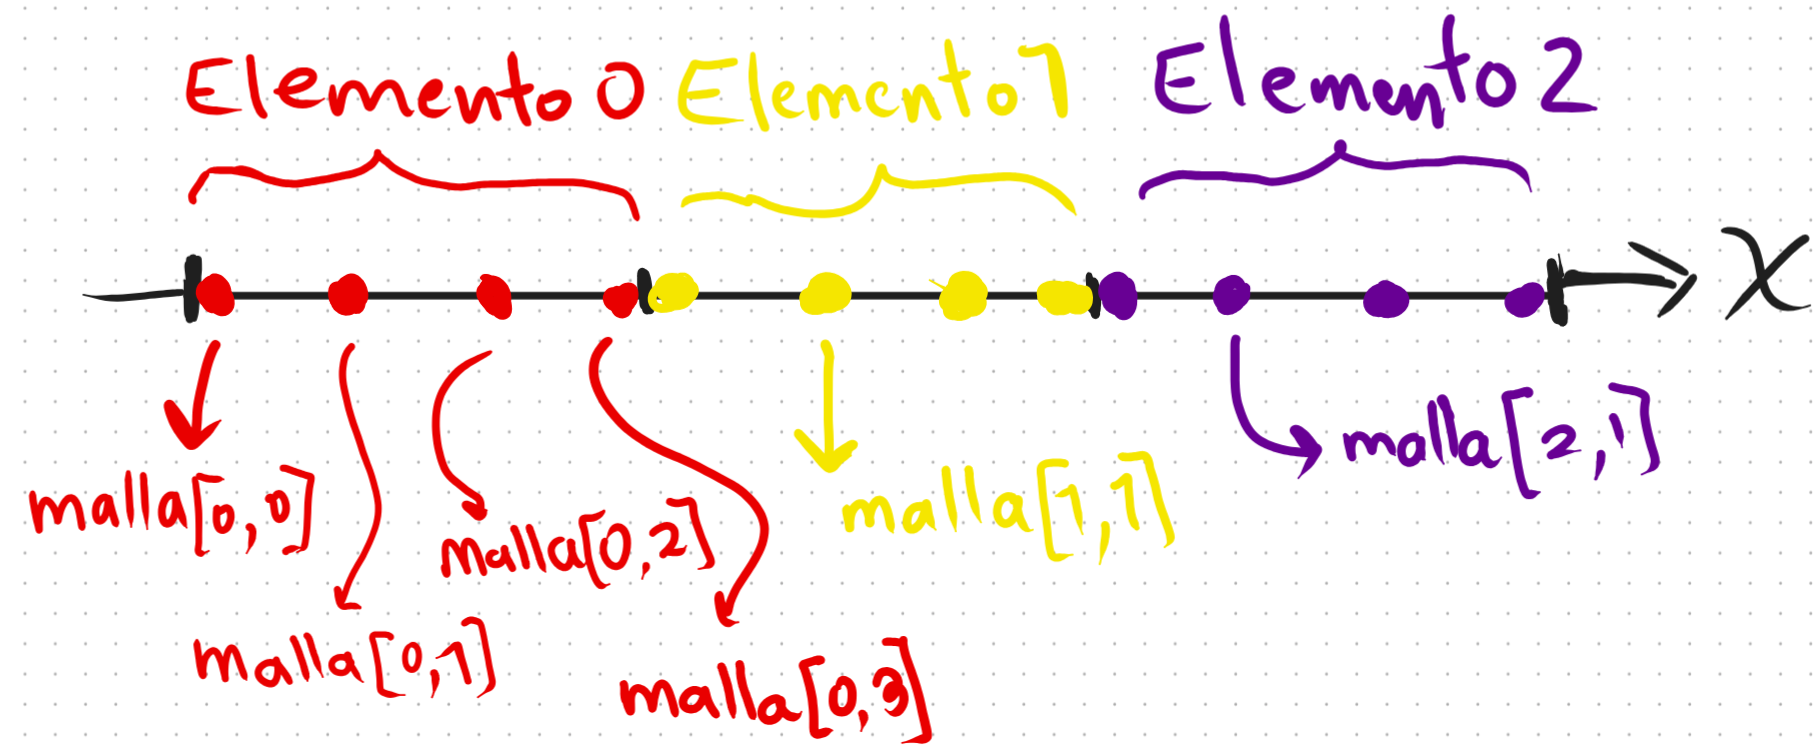 Elemento 0 Elemento 1 Elemento 2
x
malla[0,0]
malla[0,1]
malla[0,2]
malla[0,3]
malla[1,1]
malla[2,1]